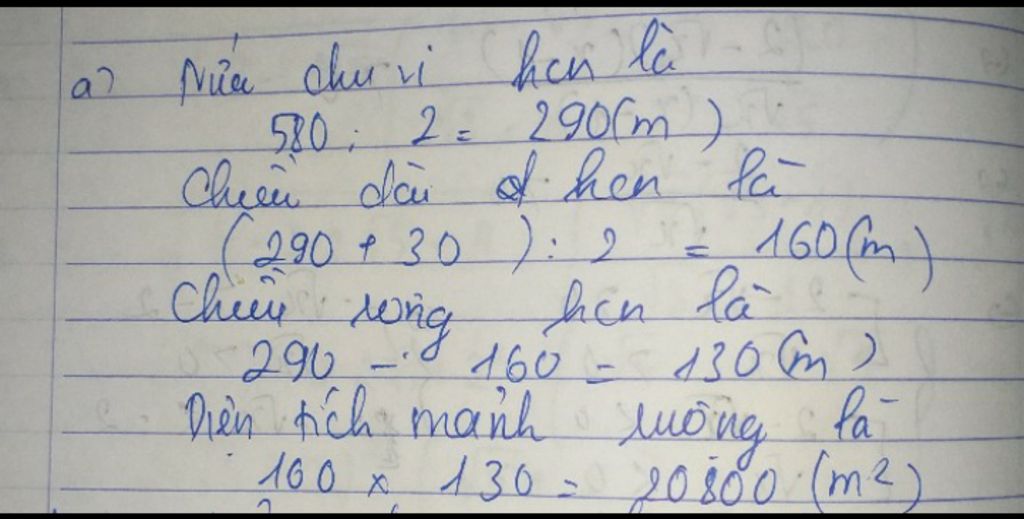 a) Nửa chu vi hcn là
580 : 2 = 290(m)
Chiều dài hcn là
(290 + 30) : 2 = 160(m)
Chiều rộng hcn là
290 - 160 = 130(m)
Diện tích mảnh ruộng là
160 x 130 = 20800 (m²)